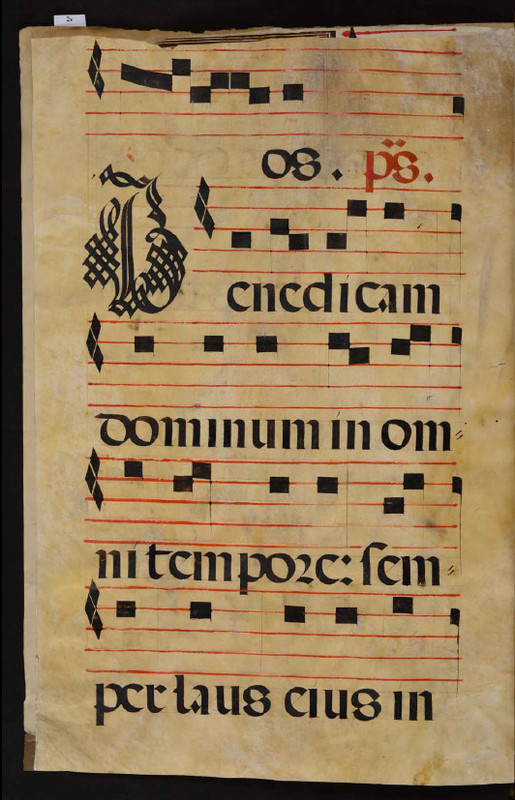 os. ps.
Benedicam
dominum in om⸗
ni tempore: sem⸗
per laus eius in